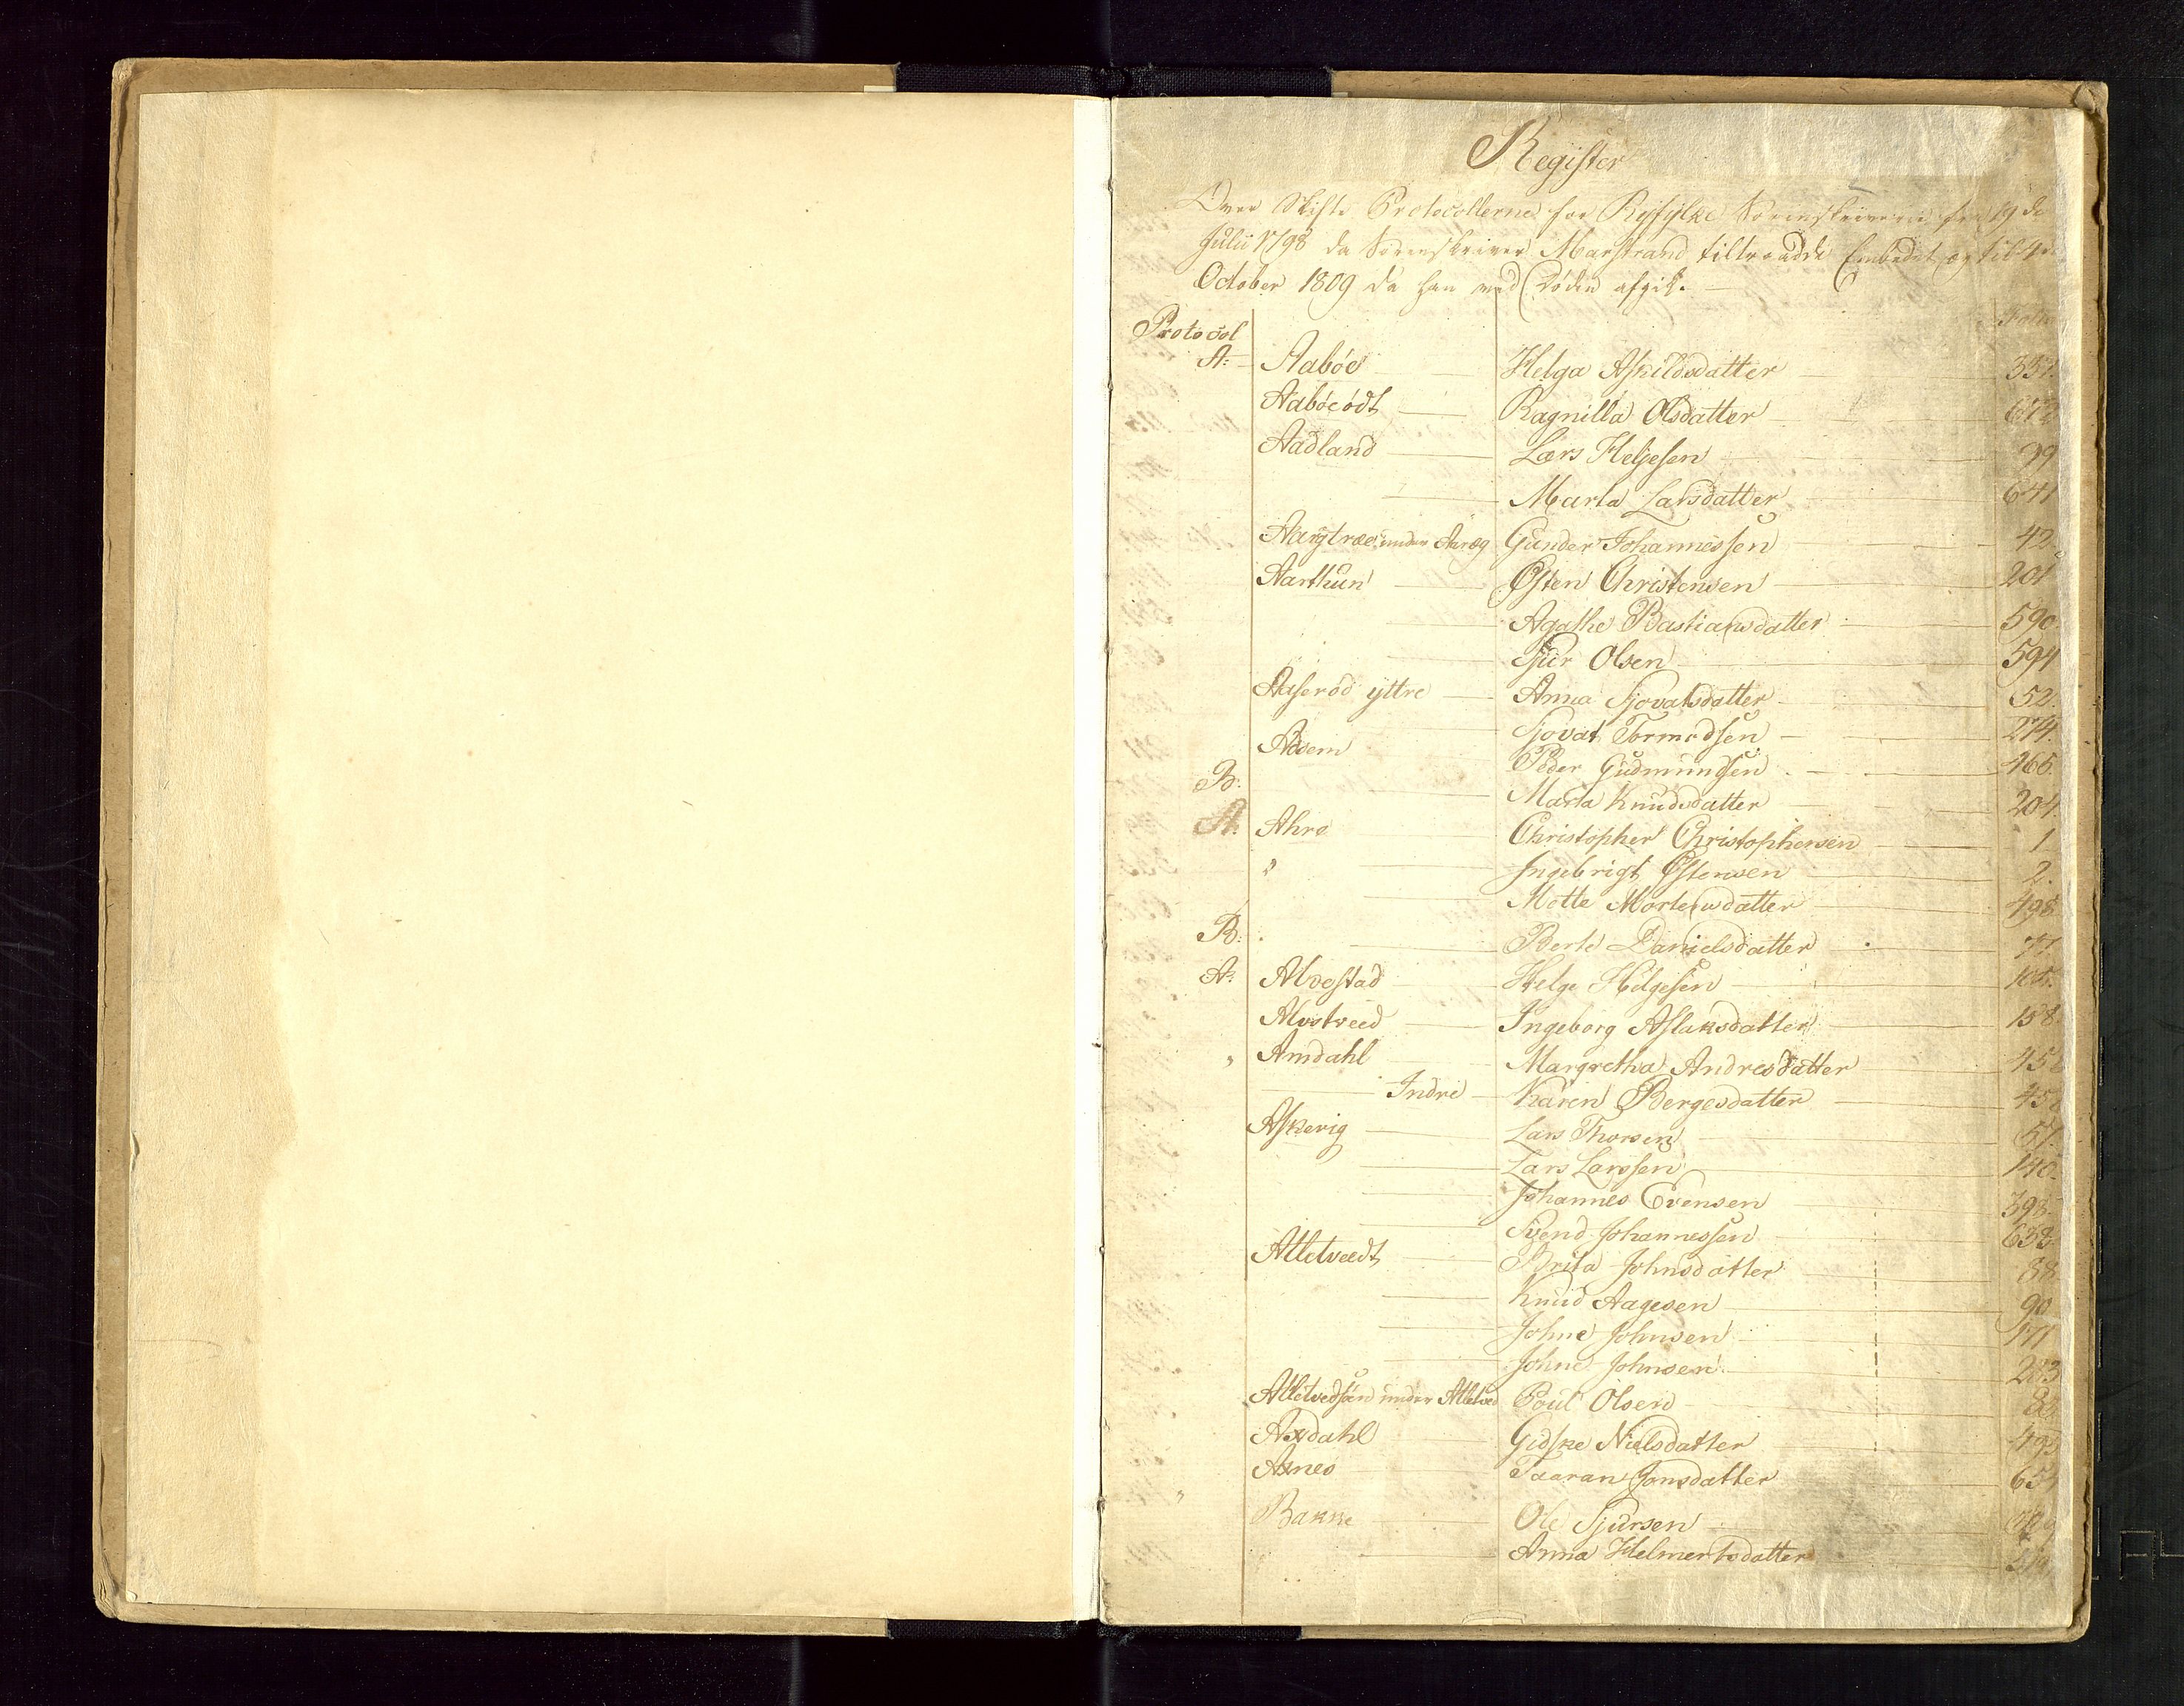 Register
Over Skifte Protocollerne for Ryfylke Sorenskriverie fra 19de
Julii 1798 da Sorenskriver Marstrand tiltraadde Embedet og til 4de
October 1809 da han ved Døden afgik.
Protocol Folio
A: Aabøe Helga Askildsdatter 337.
Aabøeødt Ragnilla Olsdatter 672
Aadland Lars Helgesen 39
Marta Larsdatter 641
under Aareg Gunder Johannessen 42
Aarthun Østen Christensen 201
Agathe Bastiansdatter 590
Sjur Olsen 594
Aaserød yttre Anna Sjovatsdatter 52.
Sjovat Tormodsen 274.
Aasem Peder Gudmundsen 466.
B: Marta Knudsdatter 204.
A. Ahre Christopher Christophersen 1
" Ingebrigt Østensen 2.
Mette Mortensdatter 498
B: Berte Danielsdatter 77.
A: Alvestad Helge Helgesen 105.
Alvstveed Ingeborg Aslaksdatter 158
" Amdahl Margretha Andresdatter 45
Indre Karen Bergesdatter 458
Askevig Lars Thorsen 57.
Lars Larssen 140.
Johannes Evensen 398.
Svend Johannessen 638
Atletveedt Brita Johnsdatter 88
Knud Aagesen 90
Johne Johnsen 171
Johne Johnsen 283
under Atletved Poul Olsen 83
Axdahl Gidske Nielsdatter 493
Axnes Taaran Jonsdatter 654
" Bakke Ole Sjursen
Anna Helmertsdatter